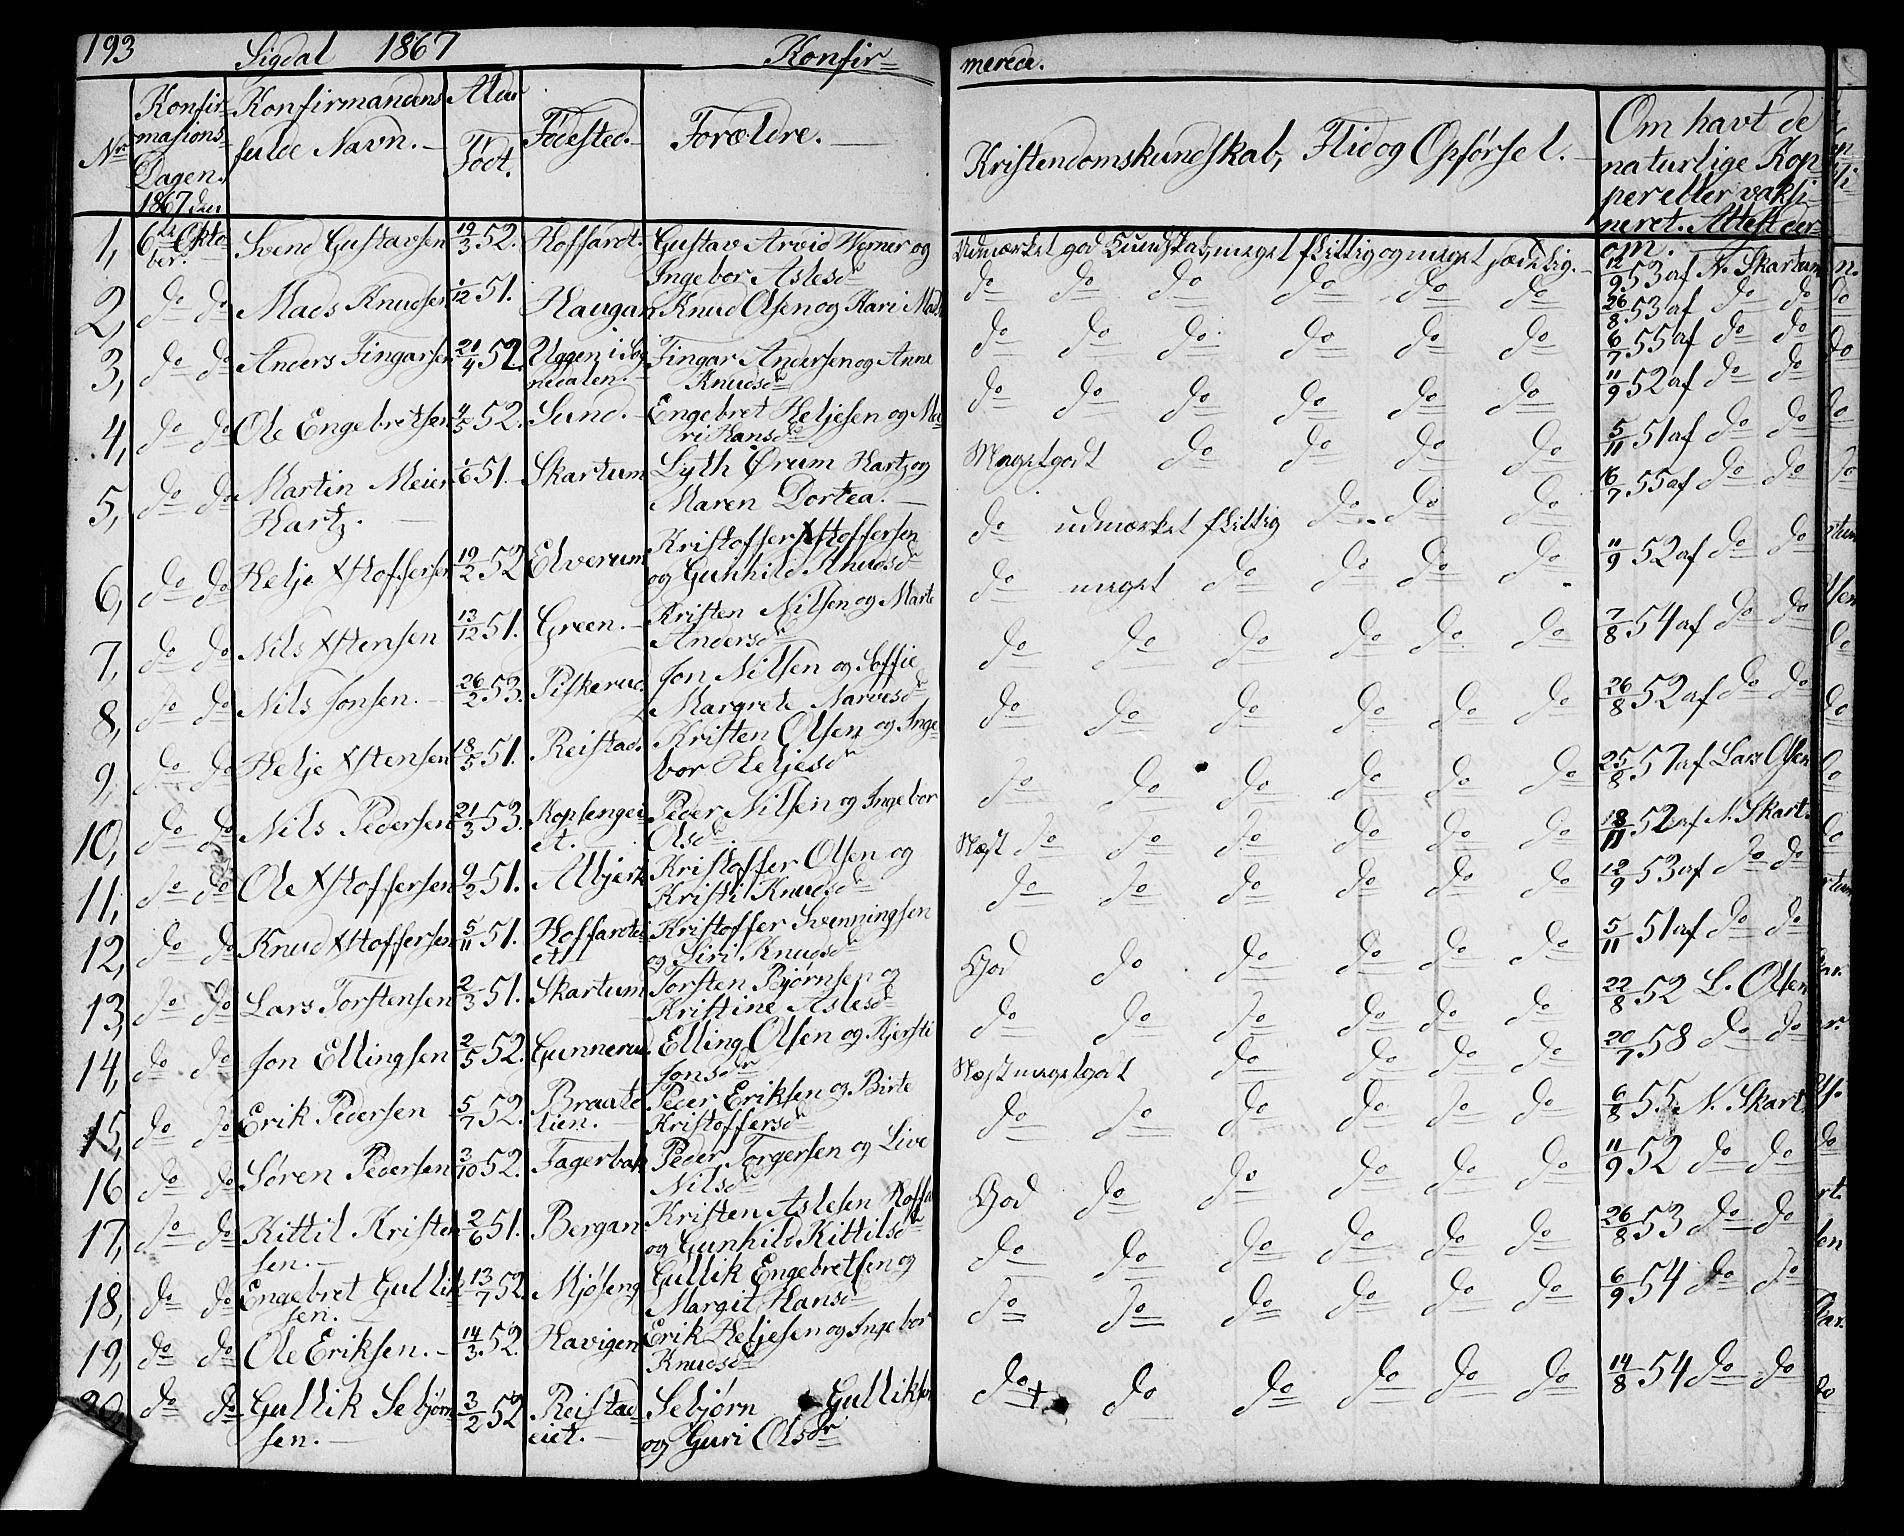 193 Sigdal 1867 Konfir=
merede.
Nr Konfir= masions Dagen. 1867 den
Konfirmandens fulde Navn.
Alder Født.
Fødested.
Forældre.
Kristendomskundskab, Flid og Opførsel.
Om havt de naturlige Kopper eller vaksineret. Attest der om.
1, 6te Oktober. Svend Gustavsen 19/3 52. Hoffardt. Gustav Arvid Werner og Ingebor Aslesdr Udmærket god Kundskab, meget flittig og meget sædelig. 12/9 53 af N. Skartum
2, do do Mads Knudsen 51. Haugan Knud Olsen og Kari Mads do do do do do do 26/8 53 af do do
3, do do Anders Fingarsen 21/4 52. Uggen i Sognedalen. Fingar Andersen og Anne Knudsdr do do do do do do 6/7 55 af do do
4, do do Ole Engebretsen 4/5 52. Sund. Engebret Heljesen og Mari Hansdr do do do do do do 11/9 52 af do do
5, do do Martin Meier Hartz. 1/6 51. Skartum Lyth Ørum Hartz og Maren Dortea. Megetgodt do do do do 5/11 51 af do do
6, do do Helje Xstoffersen 19/2 52 Elverum Kristoffer Xstoffersen og Gunhild Knudsdr do udmærket flittig do do do 16/7 55 af do do
7, do do Nils Xstensen 13/12 51. Green. Kristen Nilsen og Marte Andersdr do meget do do do do 11/9 52 af do do
8, do do Nils Jonsen. 26/2 53. Piskerud. Jon Nilsen og Soffie Margrete Narvesdr do do do do do do 7/8 54 af do do
9, do do Helje Xstensen 18/5 51. Reistad. Kristen Olsen og Ingebor Heljesdr do do do do do do 26/8 52 af do do
10, do do Nils Pedersen 21/3 53. Koplengeet. Peder Nilsen og Ingebor Olsdr do do do do do do 25/8 57 af Lars Olsen
11, do do Ole Xstoffersen 9/2 51. Albjerk Kristoffer Olsen og Kristi Knudsdr Næst do do do do do do 18/11 52 af N. Skart.
12, do do Knud Xstoffersen 5/11 51. Hoffardteiet Kristoffer Svenningsen og Siri Knudsdr do do do do do do 12/9 53 af do do
13, do do Lars Torstensen 2/3 51. Skartum Torsten Bjørnsen og Kristine Aslesdr God do do do do do 5/11 51 af do do
14, do do Jon Ellingsen 2/5 52. Gunnerud. Elling Olsen og Kjersti Jonsdr do do do do do do 22/8 52 L. Olsen
15, do do Erik Pedersen 5/7 52. Braatelien. Peder Eriksen og Birte Kristoffersdr Næst megetgodt do do do do 20/7 58 do do
16 do do Søren Pedersen 3/10 52. Fagerbak Peder Torgersen og Live Nilsdr do do do do do do 6/8 55 N. Skart
17, do do Kittil Kristensen. 2/6 51. Bergan Kristen Aslesen Hoffa og Gunhild Kittilsdr God do do do do do 11/9 52 do do
18, do do Engebret Gulliksen. 13/7 52. Mjøseng Gullik Engebretsen og Margit Hansdr do do do do do do 26/8 53 do do
19, do do Ole Eriksen. 14/3 52. Havigen Erik Heljesen og Ingebor Knudsdr do do do do do do 6/9 54 do do
20, do do Gullik Sebjørnsen. 3/2 52 Reistadeiet. Sebjørn Gulliksen og Guri Olsdr do + do do do do do 14/8 54 do do